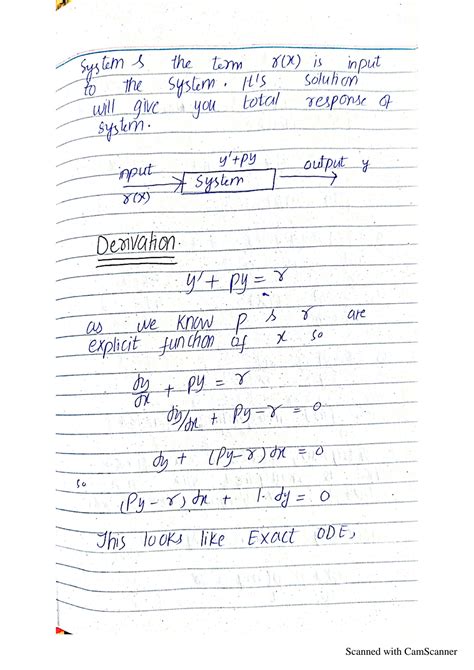 System & the term r(x) is input
to the system. It's solution
will give you total response of
system.
y'+py
input output y
System
r(x)
Derivation.
y' + py = r
as we know p & r are
explicit function of x so
dy/dx + py = r
dy/dx + py - r = 0
dy + (py - r) dx = 0
so
(py - r) dx + 1. dy = 0
This looks like Exact ODE,
Scanned with CamScanner